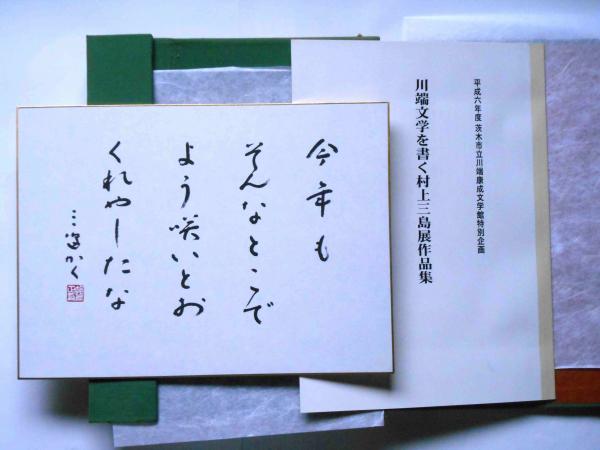 平成六年度 茨木市立川端康成文学館特別企画
川端文学を書く村上三島展作品集
今年も
そんなところで
よう咲いとお
くれやしたな
三島かく